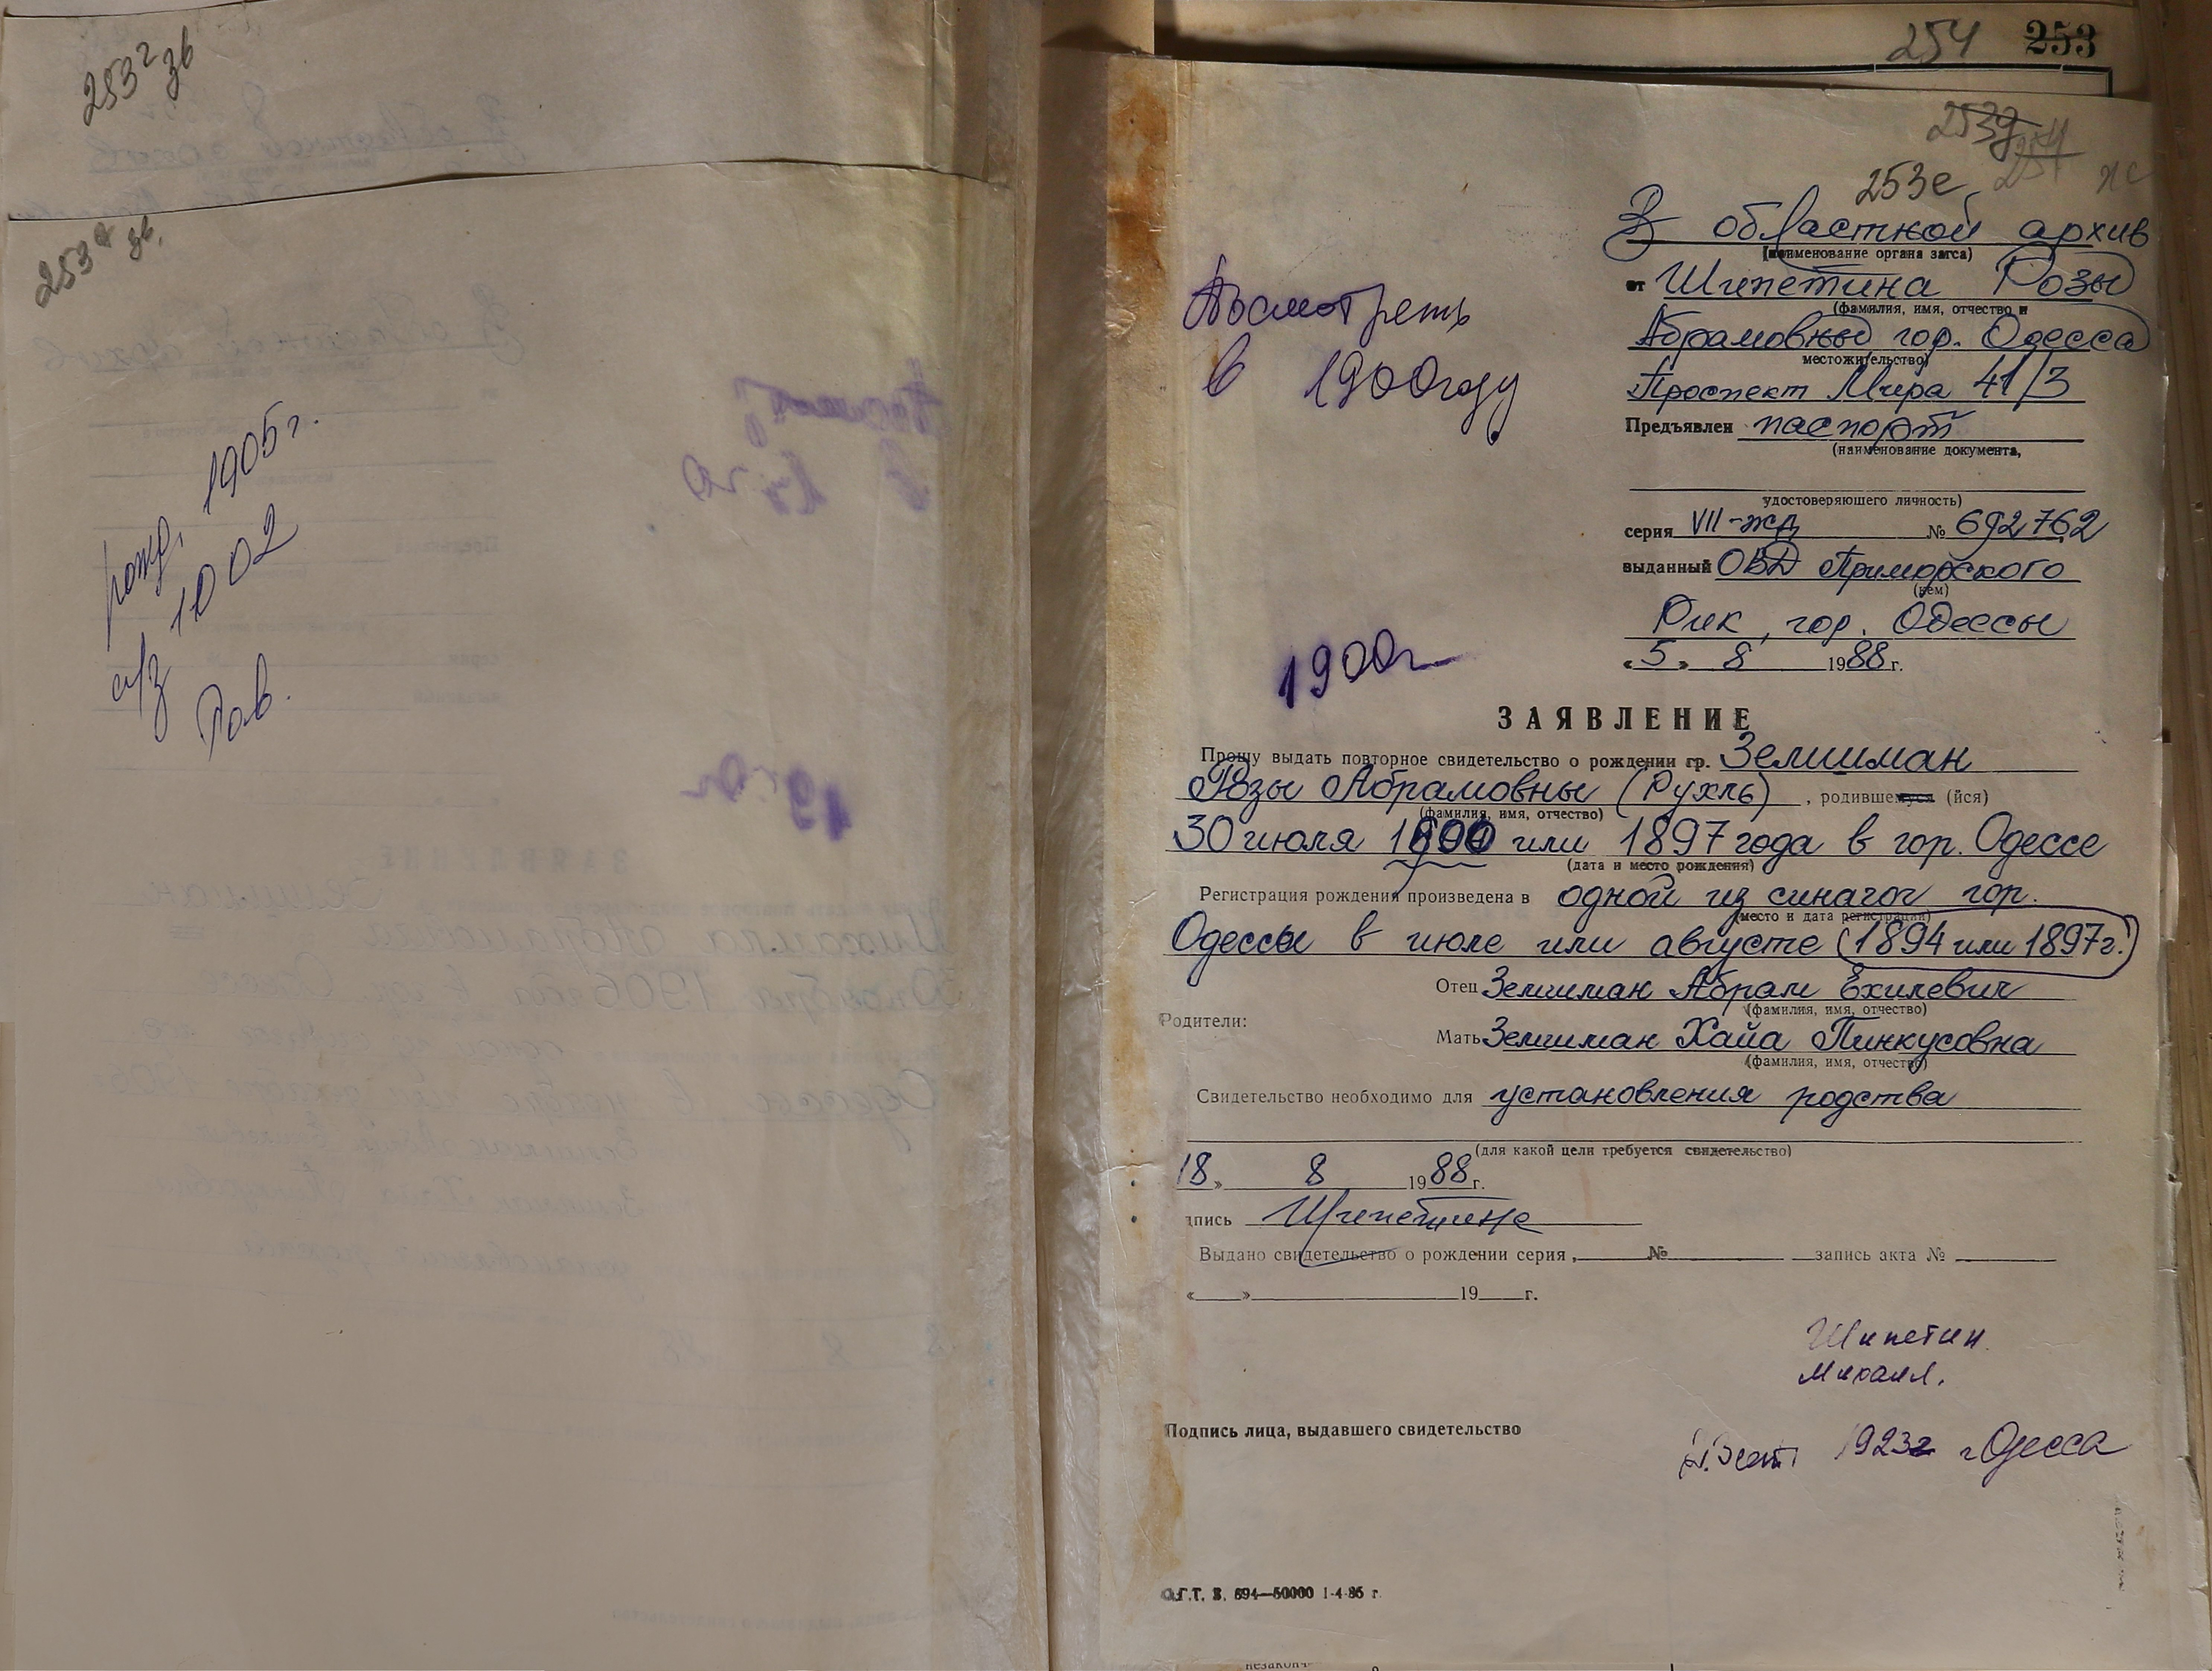 253г зв
253д зв.
рожд. 1905г.
а/з 1002
Рав.
254 253
253д
254
253е
В областной архив
(наименование органа загса)
от Шипетина Розы
(фамилия, имя, отчество и
Абрамовны гор. Одесса
местожительство)
Проспект Мира 41/3
Предъявлен паспорт
(наименование документа,
удостоверяющего личность)
серия VII-жд № 692762
выданный ОВД Приморского
(кем)
Рик, гор. Одессы
«5» 8 1988 г.
Посмотреть
в 1900 году
1900г
ЗАЯВЛЕНИЕ
Прошу выдать повторное свидетельство о рождении гр. Зелишман
Розы Абрамовны (Рухль), родившемуся (йся)
(фамилия, имя, отчество)
30 июля 1900 или 1897 года в гор. Одессе
(дата и место рождения)
Регистрация рождения произведена в одной из синагог гор.
(место и дата регистрации)
Одессы в июле или августе (1894 или 1897г.)
Отец Зелишман Абрам Ехилевич
(фамилия, имя, отчество)
Родители:
Мать Зелишман Хайа Пинкусовна
(фамилия, имя, отчество)
Свидетельство необходимо для установления родства
(для какой цели требуется свидетельство)
18» 8 1988 г.
дпись Шипетина
Выдано свидетельство о рождении серия, № запись акта №
« » 19 г.
Шипетин
Михаил.
1923г г Одесса
Подпись лица, выдавшего свидетельство
О.Г.Т. З. 694—50000 1-4-86 г.